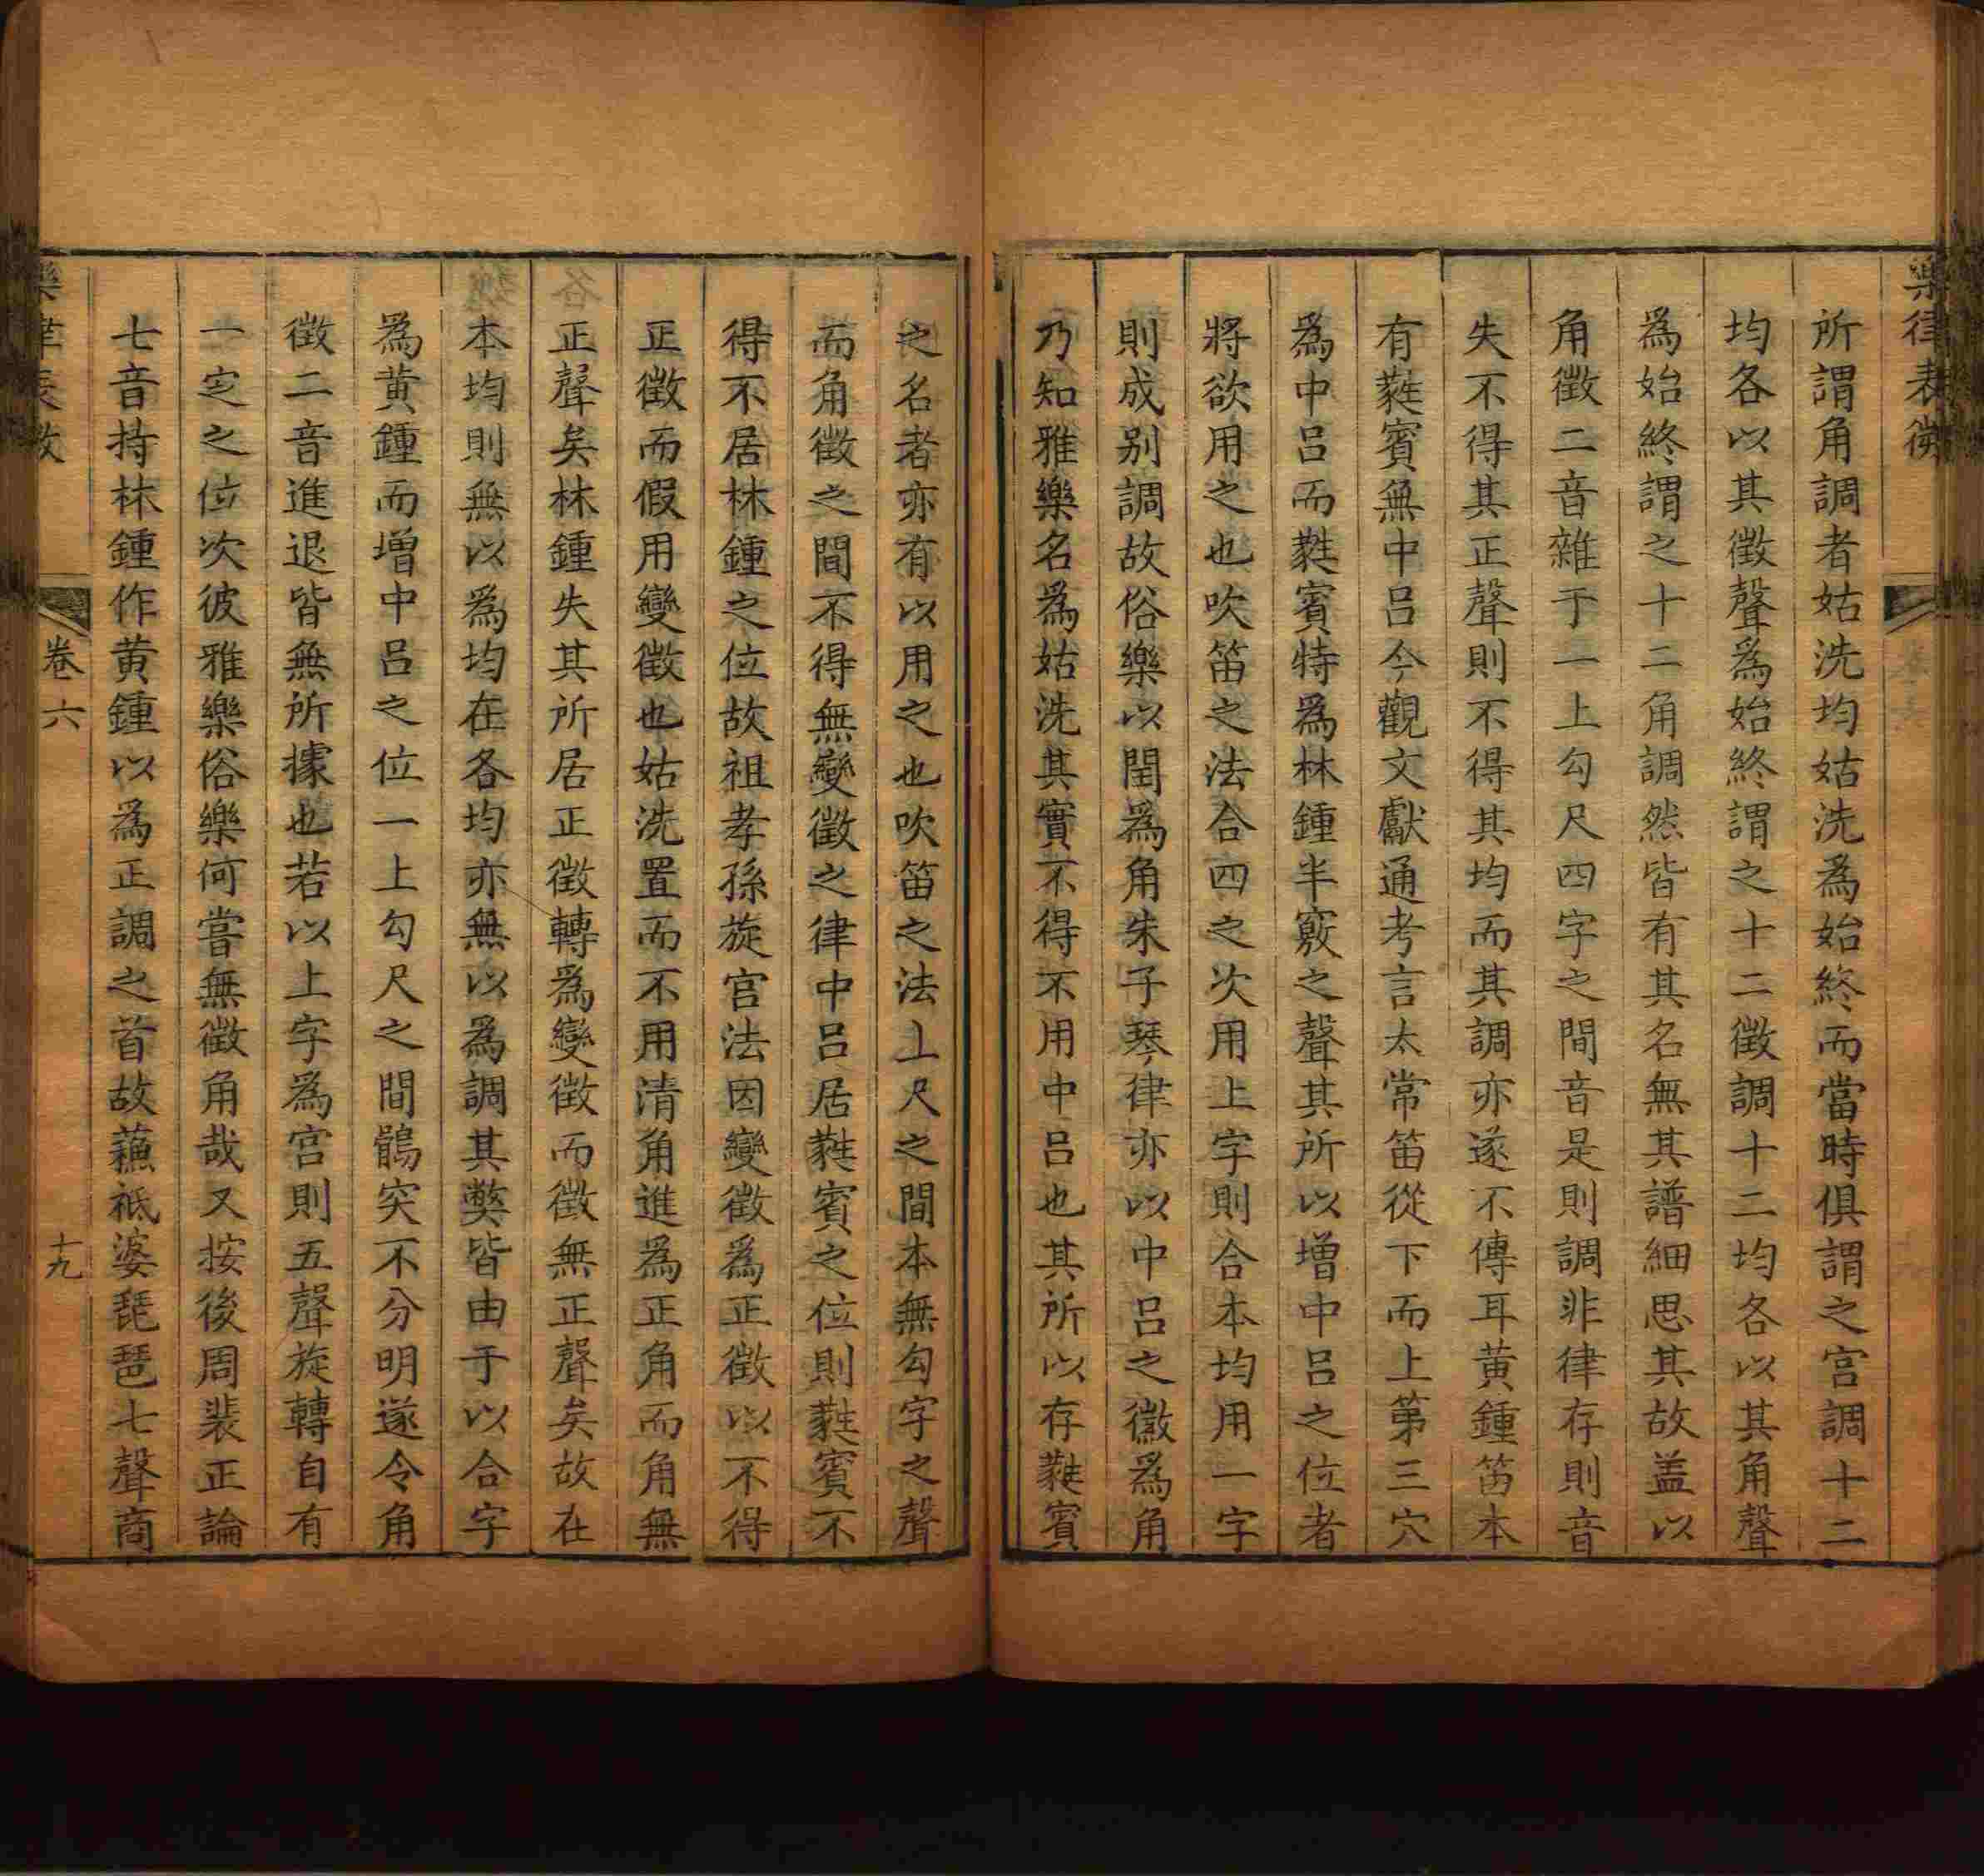 樂律表微
所謂角調者姑洗均姑洗為始終而當時俱謂之宫調十二
均各以其徵聲為始終謂之十二徵調十二均各以其角聲
為始終謂之十二角調然皆有其名無其譜細思其故盖以
角徵二音雜于一上勾尺四字之間音是則調非律存則音
失不得其正聲則不得其均而其調亦遂不傳耳黄鍾笛本
有蕤賓無中吕今觀文獻通考言太常笛從下而上第三穴
為中吕而蕤賓特為林鍾半竅之聲其所以增中吕之位者
將欲用之也吹笛之法合四之次用上字則合本均用一字
則成别調故俗樂以閏為角朱子琴律亦以中吕之徽為角
乃知雅樂名為姑洗其實不得不用中吕也其所以存蕤賓
之名者亦有以用之也吹笛之法上尺之間本無勾字之聲
而角徵之間不得無變徵之律中吕居蕤賓之位則蕤賓不
得不居林鍾之位故祖孝孫旋宫法因變徵為正徵以不得
正徵而假用變徵也姑洗置而不用清角進為正角而角無
正聲矣林鍾失其所居正徵轉為變徵而徵無正聲矣故在
本均則無以為均在各均亦無以為調其獘皆由于以合字
為黄鍾而增中吕之位一上勾尺之間鶻突不分明遂令角
徵二音進退皆無所據也若以上字為宫則五聲旋轉自有
一定之位次彼雅樂俗樂何嘗無徵角哉又按後周裴正論
七音持林鍾作黄鍾以為正調之首故蘓祗婆琵琶七聲商
樂律表微
卷六
十九